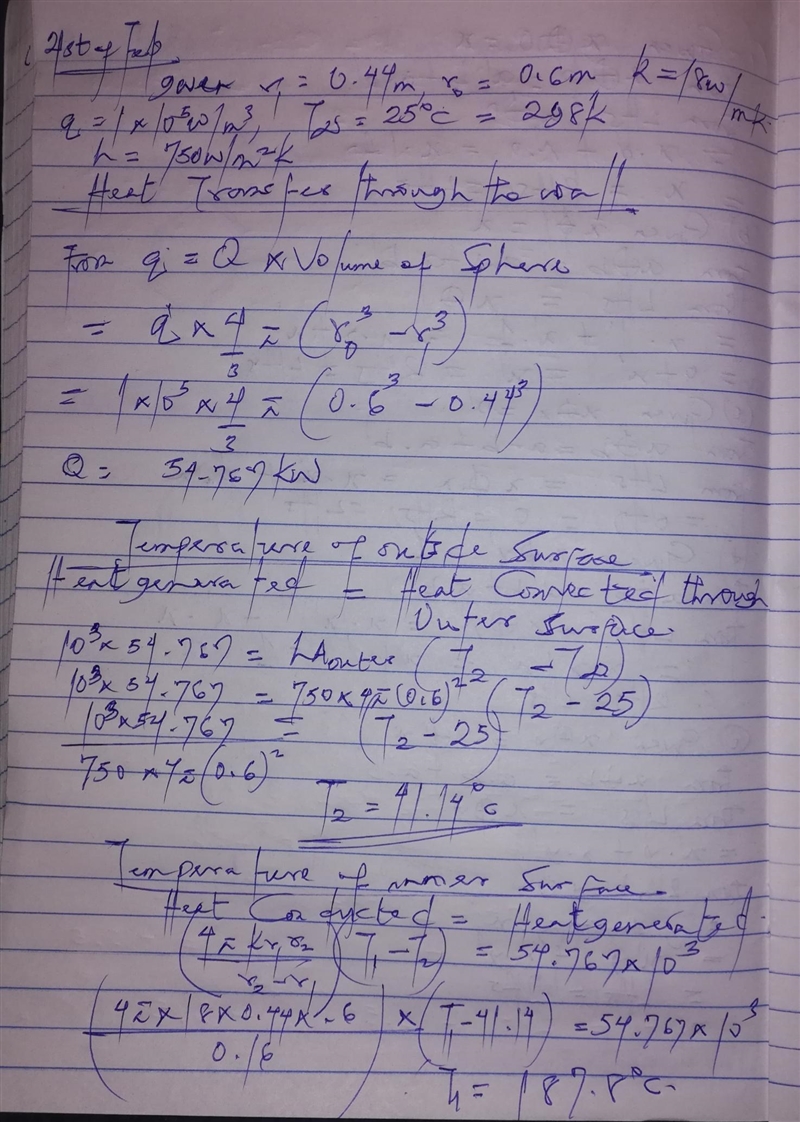 given r₁ = 0.44m, r₀ = 0.6m K = 18w/mk
q = 1x10⁵w/m³, T₂s = 25°C = 298k
h = 750w/m²k
Heat Transfer through the wall
From q = Q x Volume of Sphere
= q x 4/3 π (r₀³ - r₁³)
= 1x10⁵ x 4/3 π (0.6³ - 0.44³)
Q = 54.767 kW
Temperature of outside Surface
Heat generated = Heat Convected through
Outer Surface
10³ x 54.767 = hAouter (T₂ - T∞)
10³ x 54.767 = 750 x 4π(0.6)² (T₂ - 25)
10³ x 54.767 / 750 x 4π(0.6)² = (T₂ - 25)
T₂ = 41.14°c
Temperature of inner Surface.
Heat Conducted = Heat generated.
(4π k r₁ r₂ / r₂ - r₁) (T₁ - T₂) = 54.767 x 10³
(4π x 18 x 0.44 x .6 / 0.16) x (T₁ - 41.14) = 54.767 x 10³
T₁ = 187.8°c.